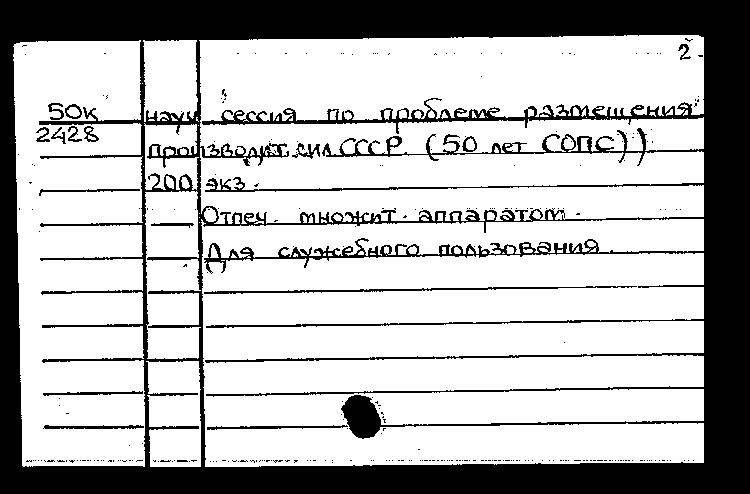 2.
50к науч сессия по проблеме размещения
2428
производит. сил СССР. (50 лет СОПС))
200 экз.
Отпеч. множит. аппаратом.
Для служебного пользования.